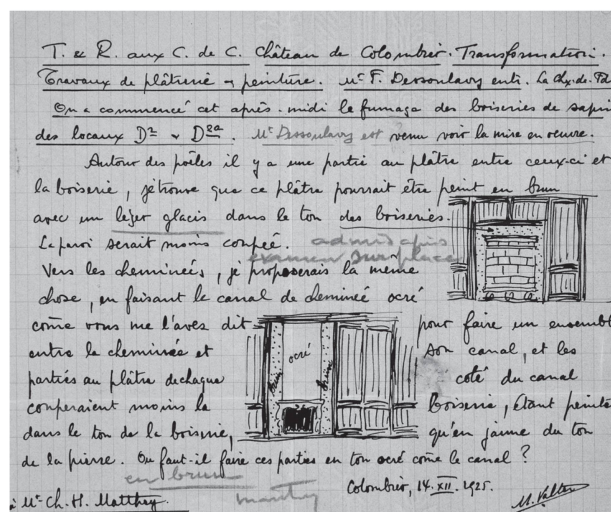 T. & R. aux C. de C. Château de Colombier. Transformation.
Travaux de plâtrerie & peinture. Mr F. Dessoulavy entr. La Chx-de-Fd
On a commencé cet après-midi le fumage des boiseries de sapin
des locaux D2 & D2a. Mr Dessoulavy est venu voir la mise en oeuvre.
Autour des poêles il y a une partie au plâtre entre ceux-ci et
la boiserie, je trouve que ce plâtre pourrait être peint en brun
avec un léger glacis dans le ton des boiseries.
La paroi serait moins coupée. admis après
examen sur place
Vers les cheminées, je proposerais la même
chose, en faisant le canal de cheminée ocré
come vous me l'avez dit pour faire un ensemble
entre la cheminée et son canal, et les
ocré
parties au plâtre de chaque côté du canal
brun brun
couperaient moins la boiserie, étant peintes
dans le ton de la boiserie, qu'en jaune du ton
de la pierre. Ou faut-il faire ces parties en ton ocré come le canal ?
en brun
Colombier, 14. XII. 1925.
à Mr Ch. H. Matthey.